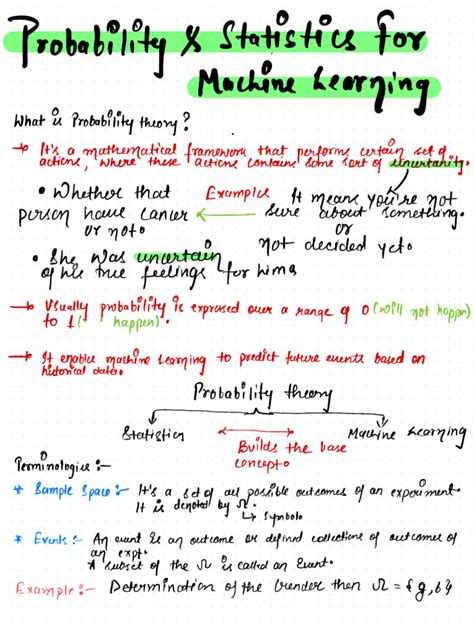 Probability & Statistics for
Machine Learning
What is Probability theory?
→ It's a mathematical framework that performs certain set of
actions, where these actions contains some sort of uncertanity.
• Whether that
person have cancer
or not.
Examples
It means you're not
sure about something.
or
not decided yet.
• She was uncertain
of his true feelings for him.
→ Usually probability is expressed over a range of 0 (will not happen)
to 1 (- happen).
→ It enable machine learning to predict future events based on
historical data.
Probability theory
Statistics
Machine Learning
Builds the base
concept.
Terminologies :-
* Sample Space :- It's a set of all possible outcomes of an experiment.
It is denoted by Ω.
↳ Symbol.
* Events :- An event is an outcome or defined collections of outcomes of
an expt.
A subset of the Ω is called an Event.
Example :- Determination of the Gender then Ω = {g, b}